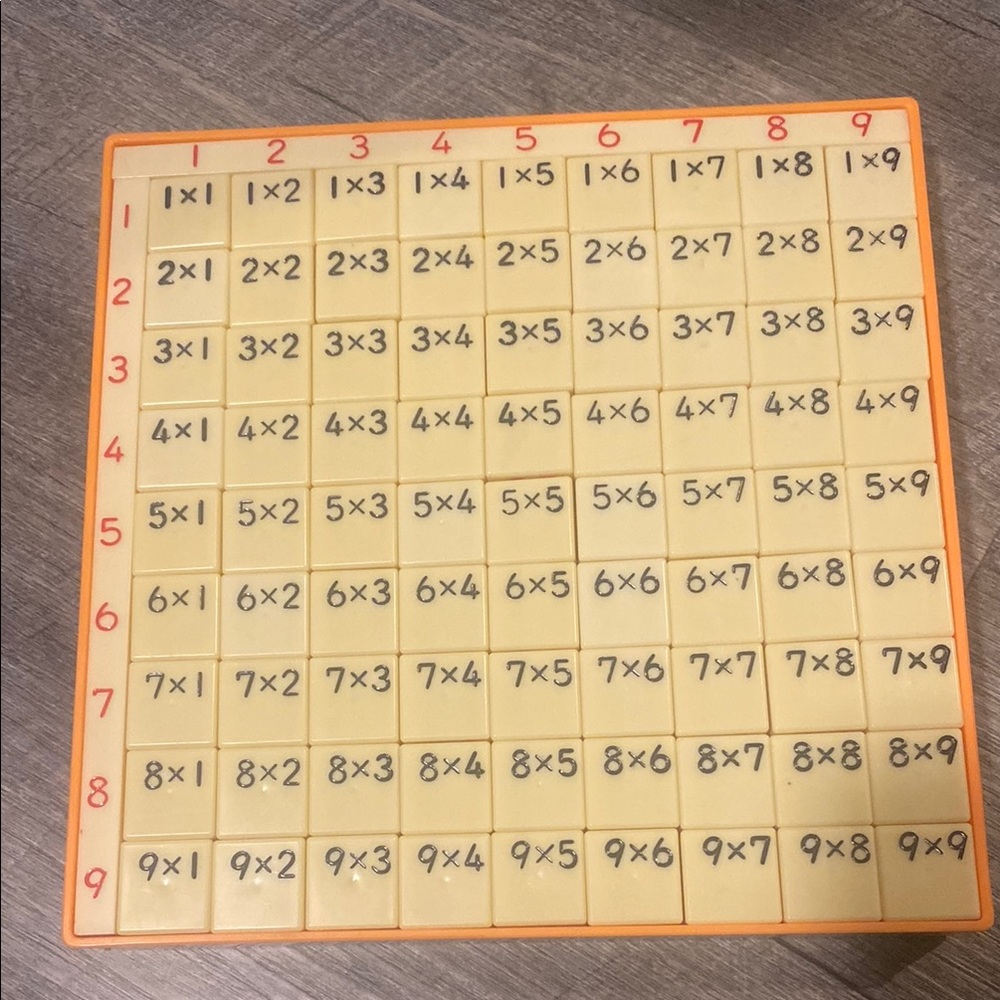 1 2 3 4 5 6 7 8 9
1 1×1 1×2 1×3 1×4 1×5 1×6 1×7 1×8 1×9
2 2×1 2×2 2×3 2×4 2×5 2×6 2×7 2×8 2×9
3 3×1 3×2 3×3 3×4 3×5 3×6 3×7 3×8 3×9
4 4×1 4×2 4×3 4×4 4×5 4×6 4×7 4×8 4×9
5 5×1 5×2 5×3 5×4 5×5 5×6 5×7 5×8 5×9
6 6×1 6×2 6×3 6×4 6×5 6×6 6×7 6×8 6×9
7 7×1 7×2 7×3 7×4 7×5 7×6 7×7 7×8 7×9
8 8×1 8×2 8×3 8×4 8×5 8×6 8×7 8×8 8×9
9 9×1 9×2 9×3 9×4 9×5 9×6 9×7 9×8 9×9